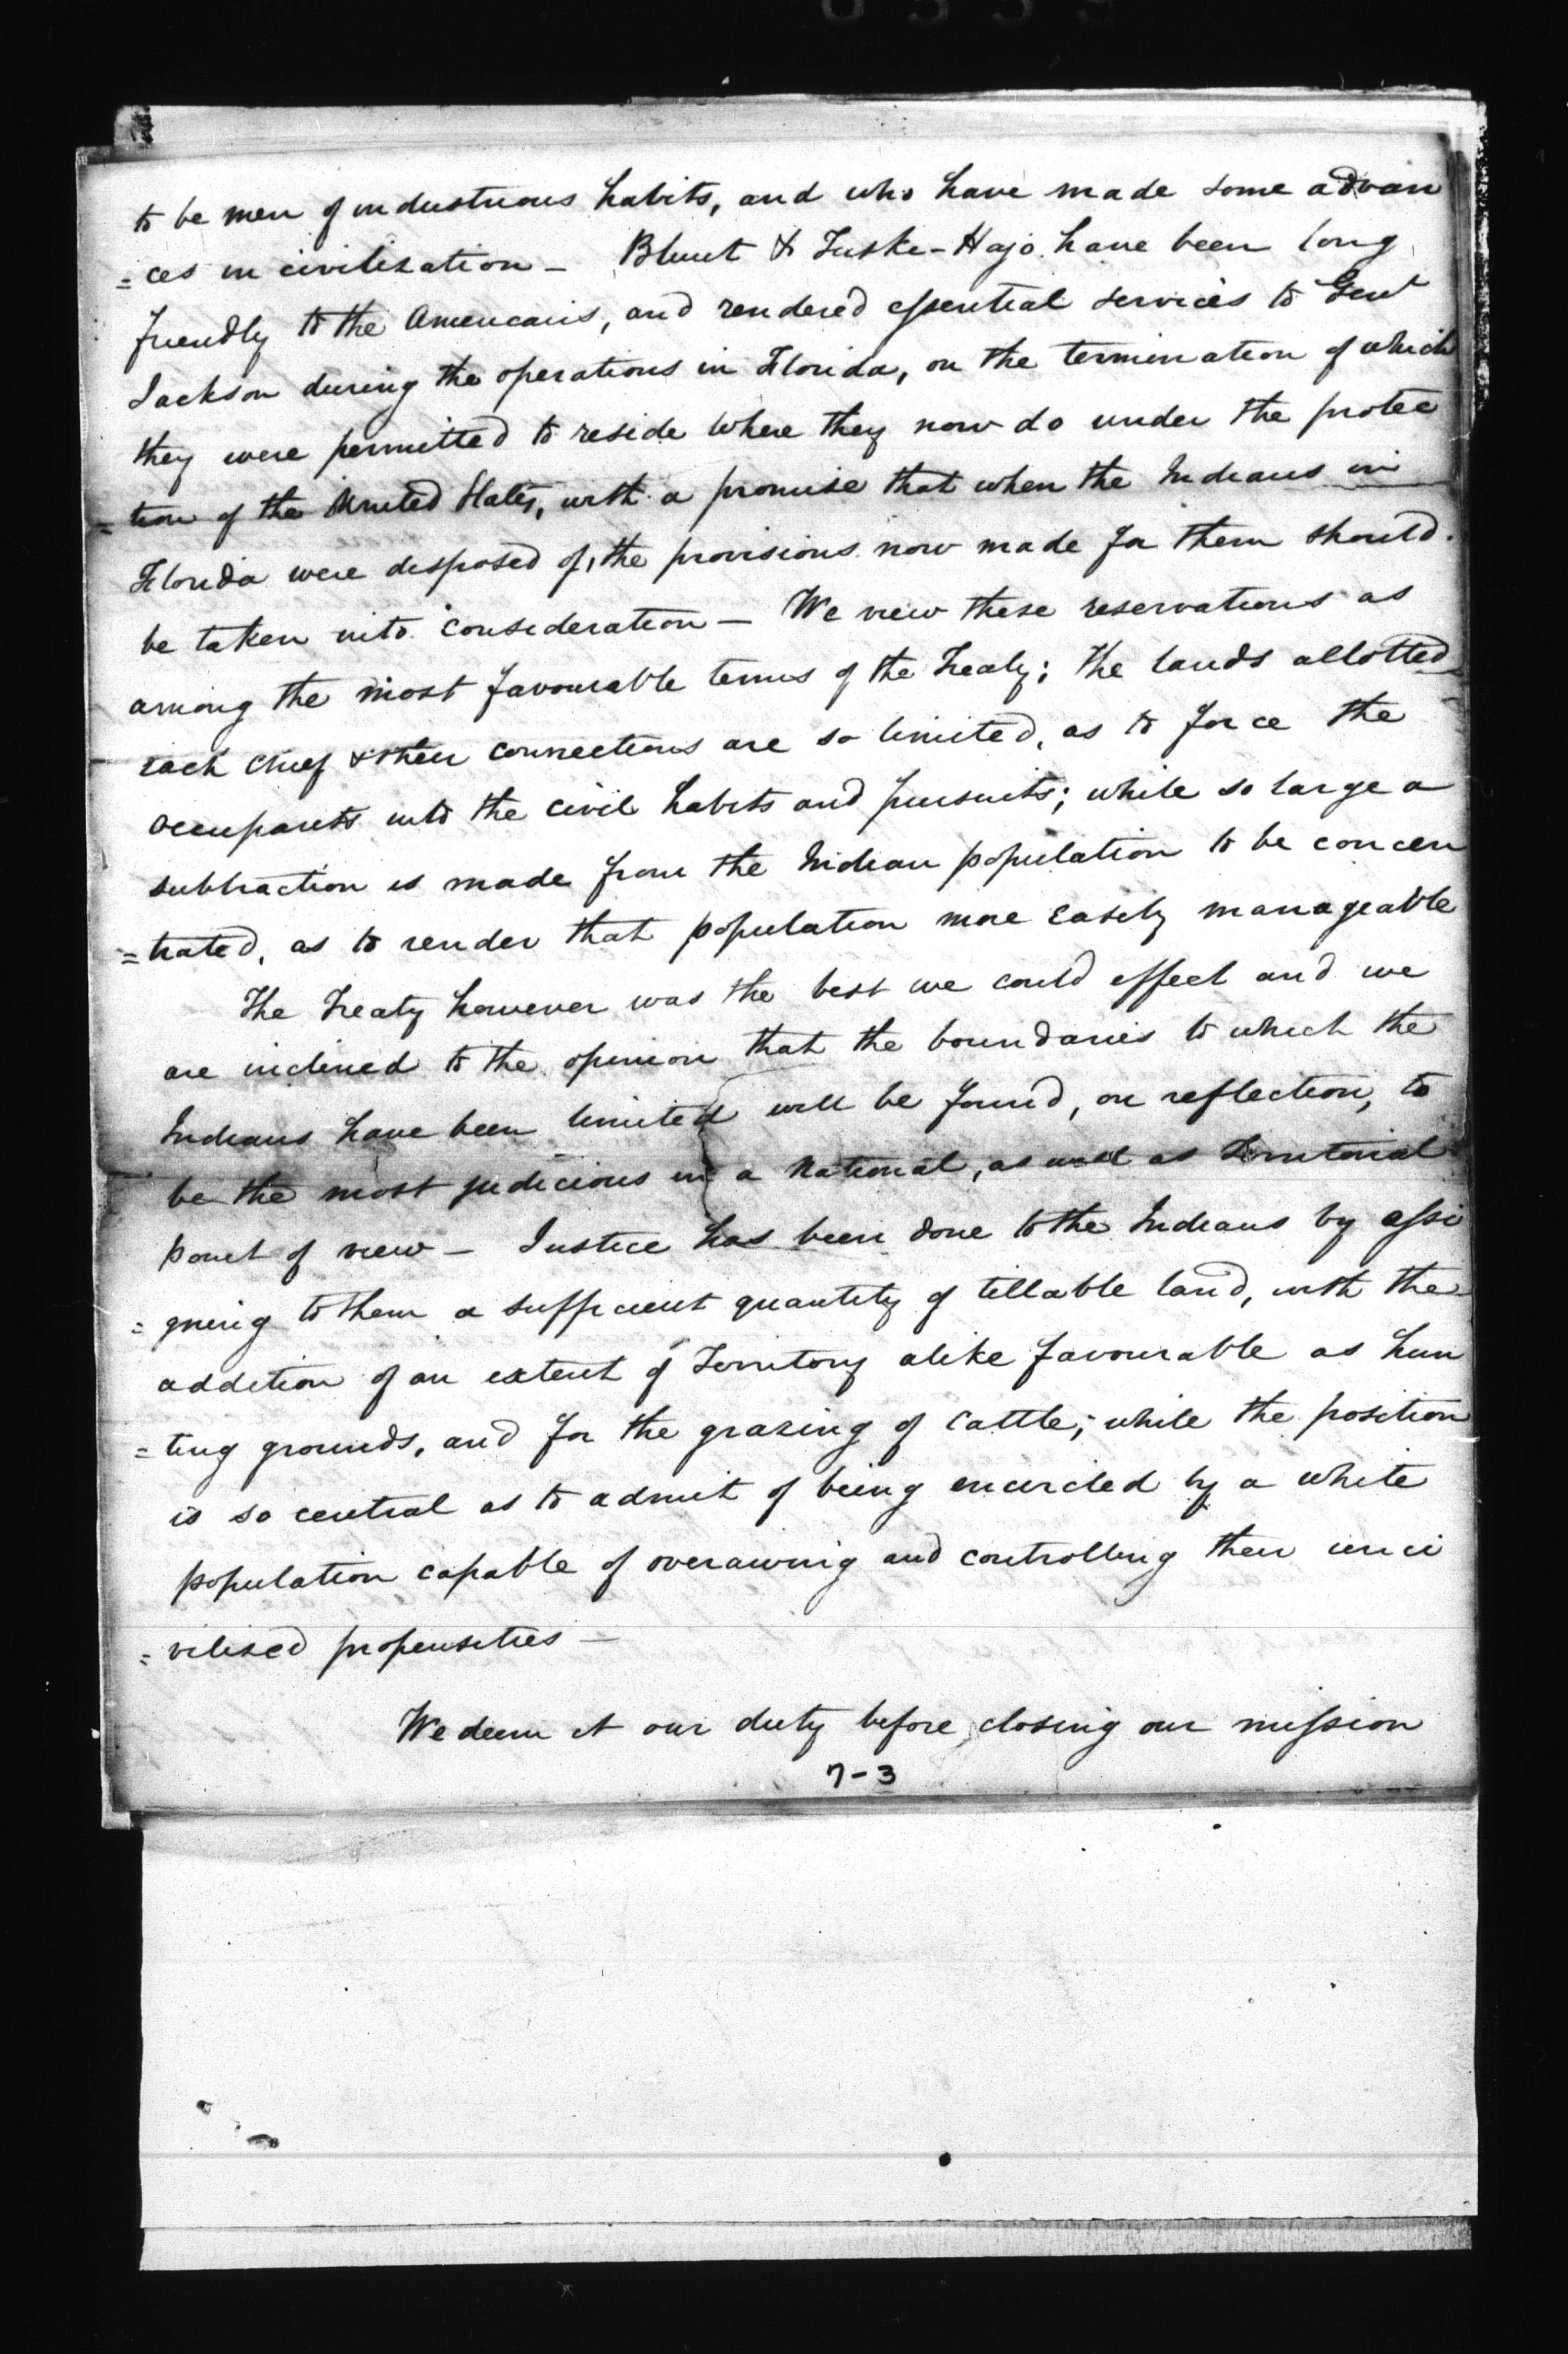 to be men of industrious habits, and who have made some advan
=ces in civilization – Blunt & Tuske-Hajo have been long
friendly to the Americans, and rendered essential services to Genl
Jackson during the operations in Florida, on the termination of which
they were permitted to reside where they now do under the protec
=tion of the United States, with a promise that when the Indians in
Florida were disposed of, the provisions now made for them should
be taken into consideration – We view these reservations as
among the most favourable terms of the Treaty; the lands allotted
each chief & their connections are so limited, as to force the
occupants into the civil habits and pursuits; while so large a
subtraction is made from the Indian population to be concen
=trated, as to render that population more easily manageable
The Treaty however was the best we could effect and we
are inclined to the opinion that the boundaries to which the
Indians have been limited will be found, on reflection, to
be the most judicious in a National, as well as Territorial
point of view – Justice has been done to the Indians by assi
=gning to them a sufficient quantity of tillable land, with the
addition of an extent of Territory alike favourable as hun
=ting grounds, and for the grazing of Cattle; while the position
is so central as to admit of being encircled by a white
population capable of overawing and controlling their unci
=vilized propensities –
We deem it our duty before closing our mission
7-3